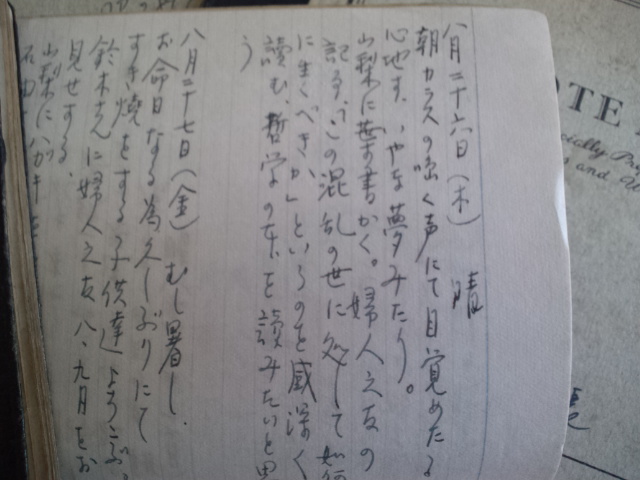 八月二十六日（木） 晴
朝カラスの啼く声にて目覚めたる
心地す、いやな夢みたり。
山梨に葉書かく。婦人之友の
記事、「この混乱の世に処して如何
に生くべきか」といふのを感深く
讀む、哲学の本を読みたいと思
う
八月二十七日（金） むし暑し、
お命日なる為久しぶりにて
すき焼をする 子供達よろこぶ、
鈴木さんに婦人之友八、九月をお
見せする、
山梨にハガキを
OTE
ecially